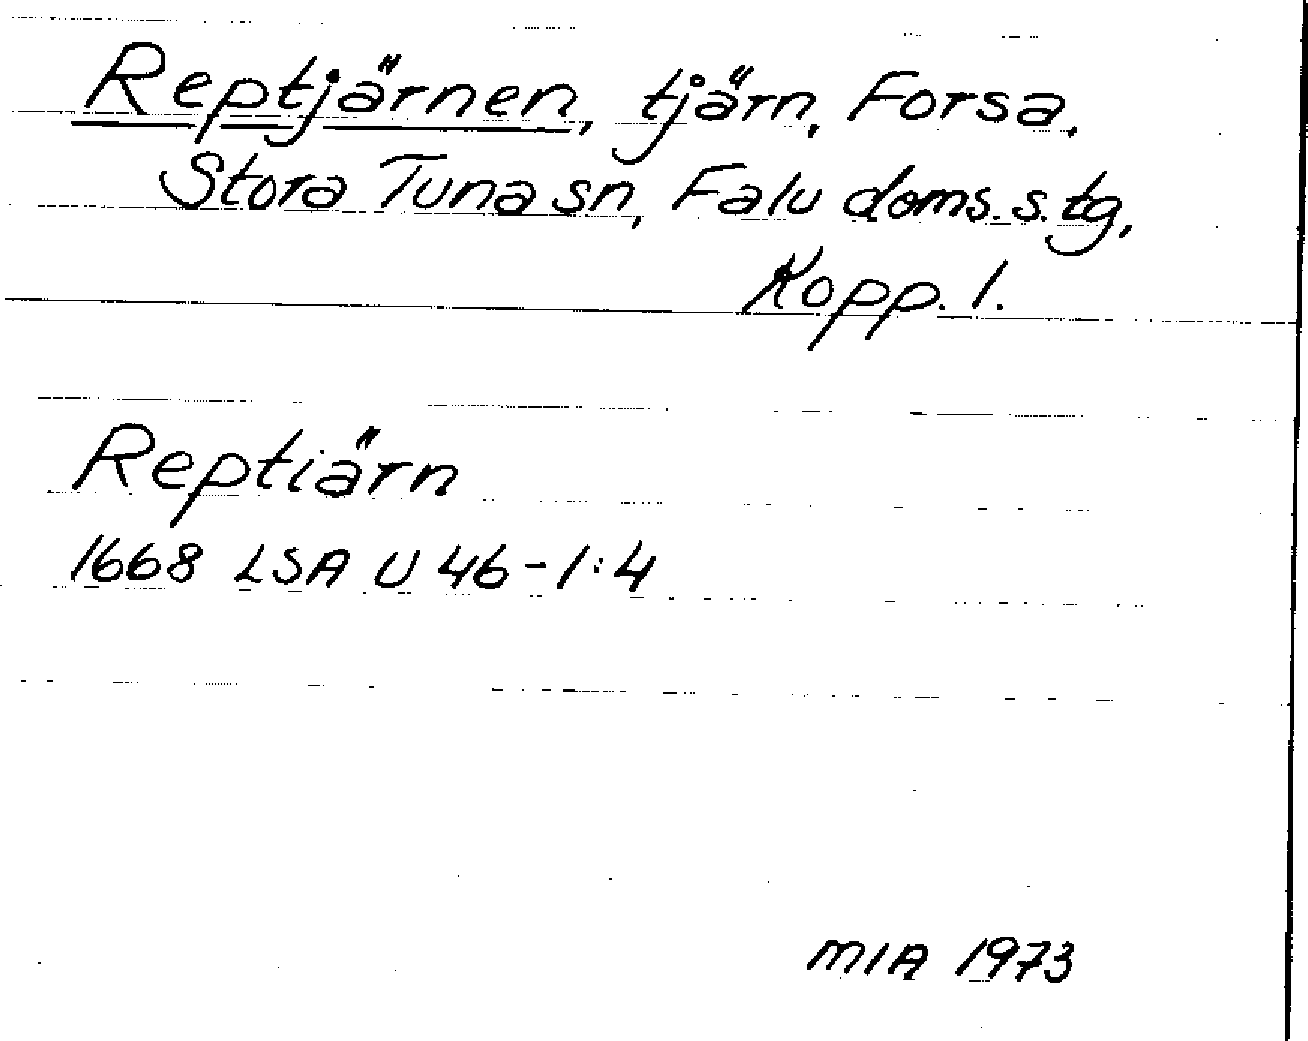 Reptjärnen, tjärn, Forsa,
Stora Tuna sn, Falu doms. s. tg,
Kopp. l.
Reptiärn
1668 LSA U 46-1:4
MIA 1973